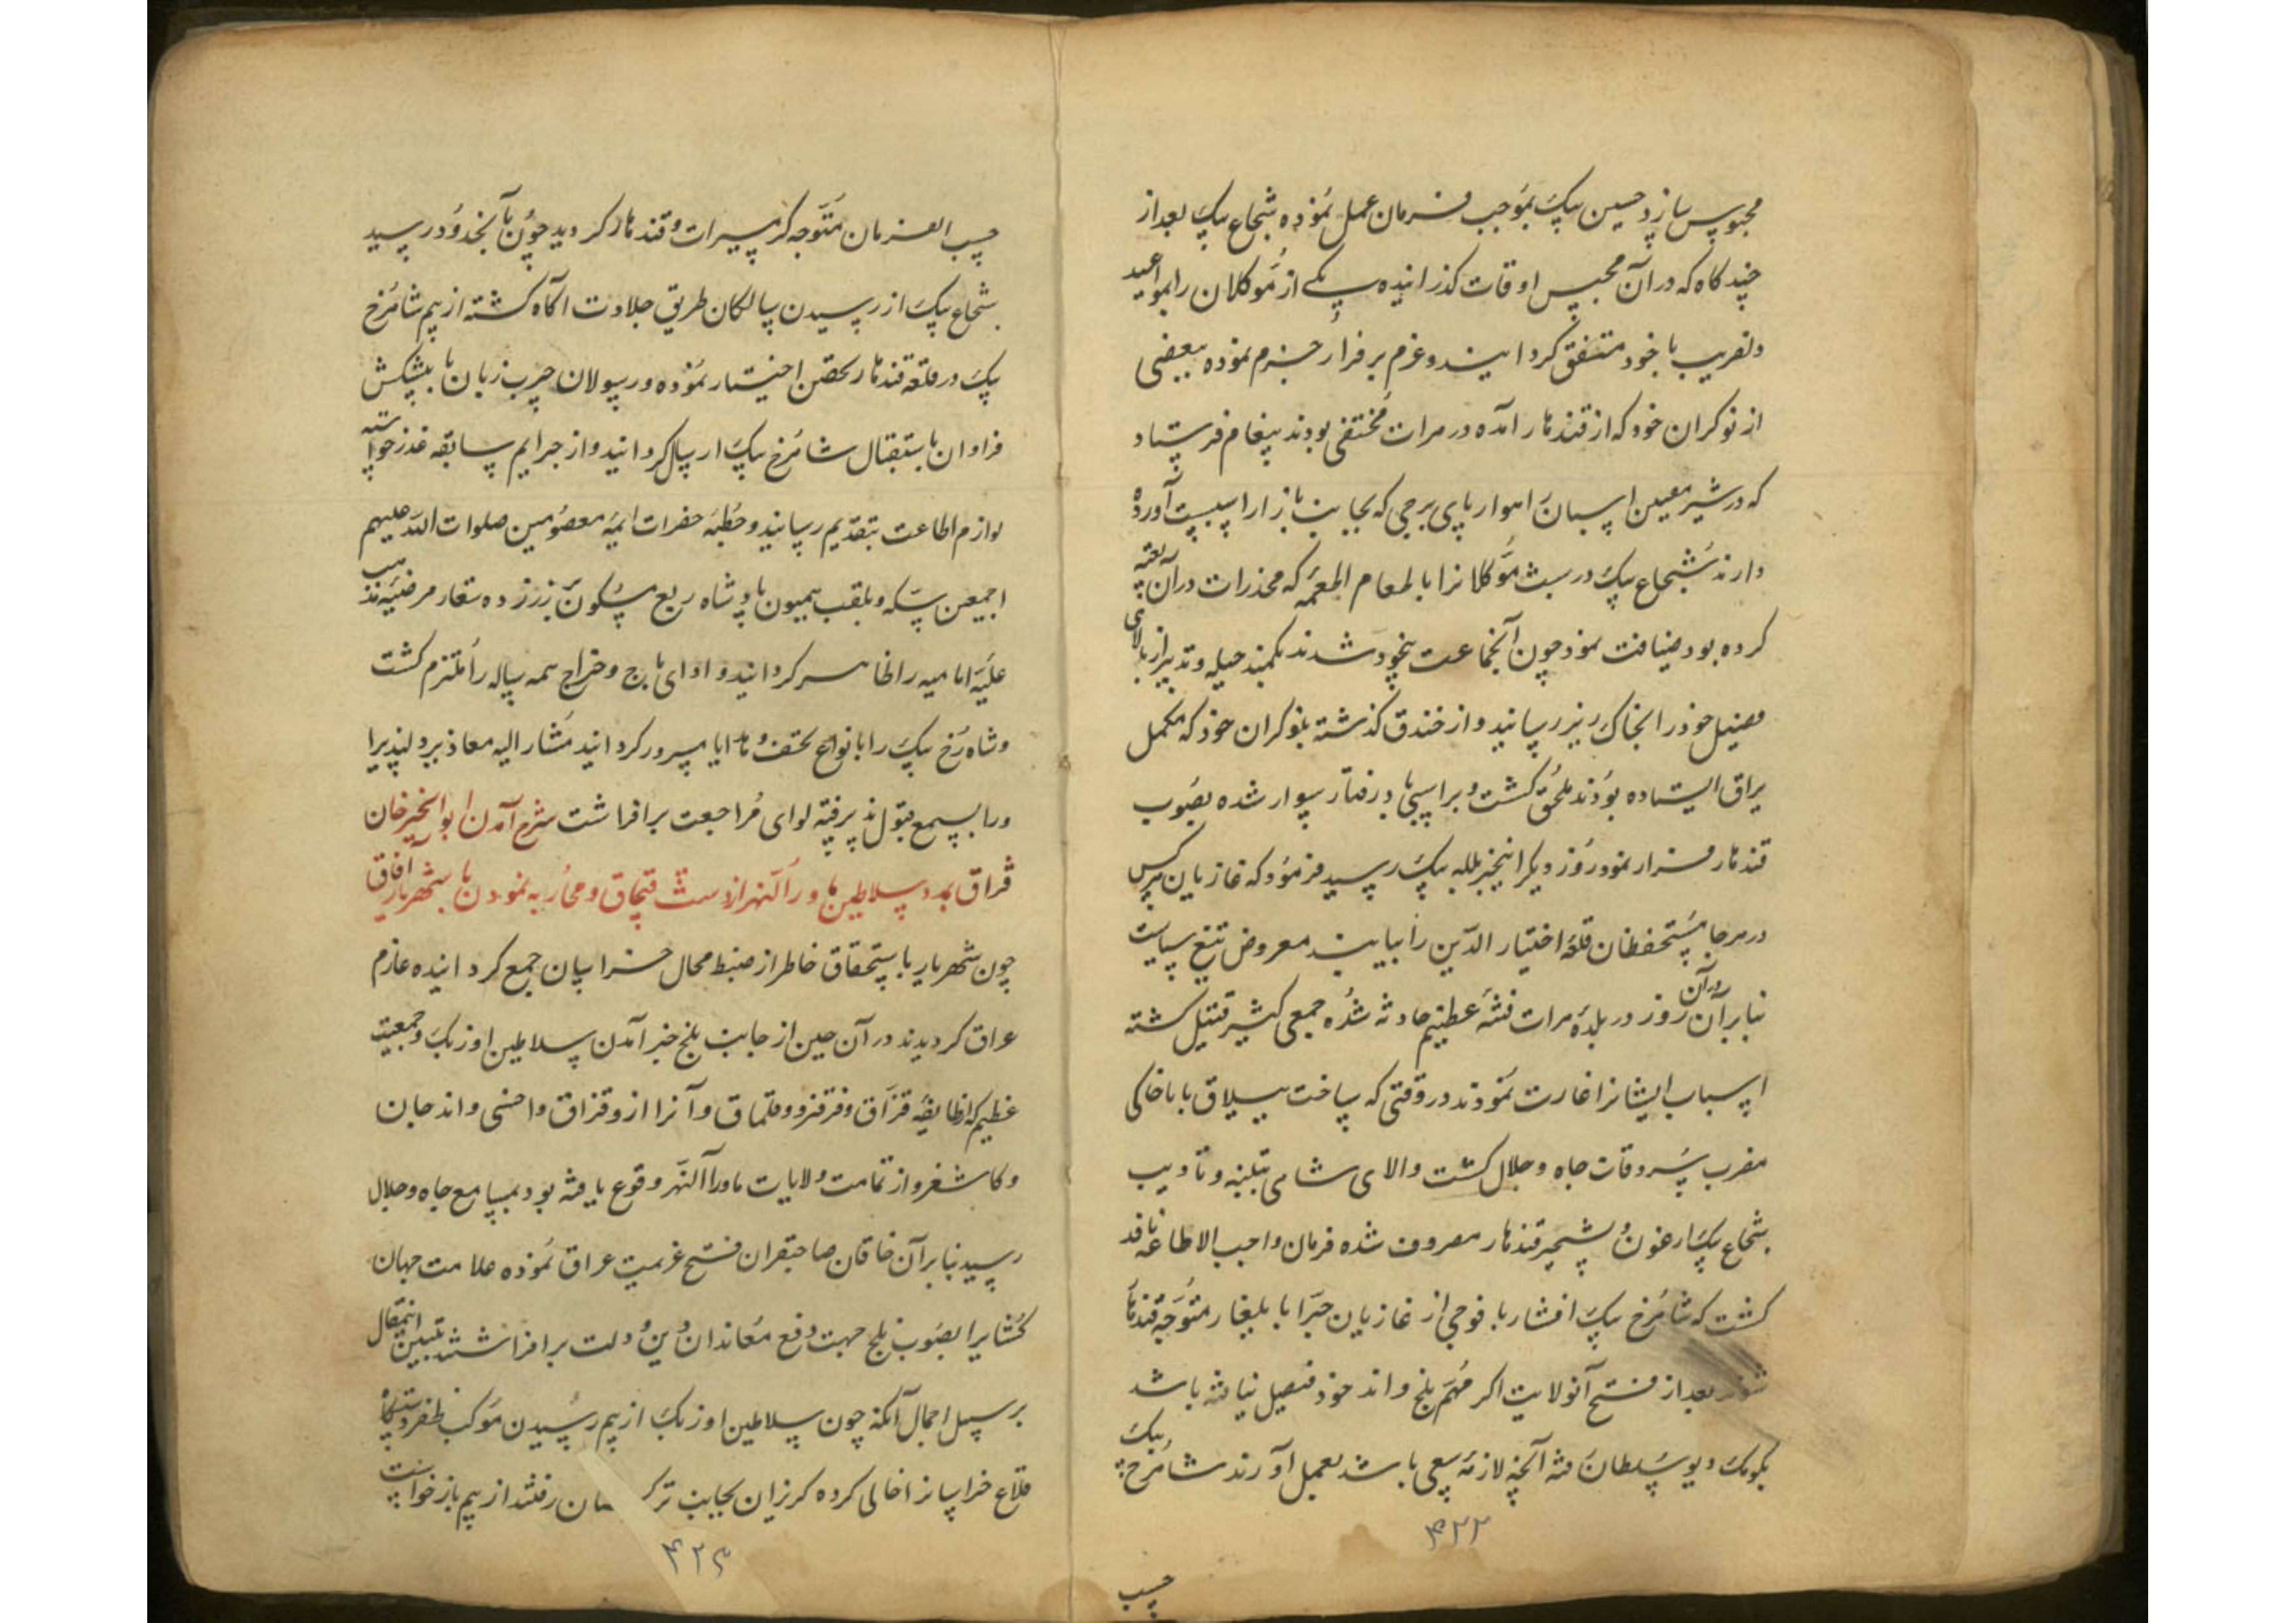 محبوس سازد حسین بیک بموجب فرمان عمل نموده شجاع بیک بعد از
چند کاه که در آن محبس اوقات کذرانیده یکی از موکلان را بمواعید
دلفریب با خود متفق کردانید و عزم بر فرار جزم نموده ببعضی
از نوکران خود که از قندهار آمده در هرات مختفی بودند پیغام فرستاد
که در شیر معین اسبان اهوار بپای برجی که بجانب بازار است آورده
دارند شجاع بیک در شب موکلانرا با لطعام المعمه که مخدرات در آن تعبیه
کرده بود ضیافت نمود چون آنجماعت بیخود شدند بکمند حیله و تدبیر از بالای
فصیل خود را بخاک ریز رسانید و از خندق کذشته بنوکران خود که مکمل
یراق ایستاده بودند ملحق کشت و بر اسپی باد رفتار سوار شده بصوب
قندهار فرار نمود روز دیکر اینخبر بلله بیک رسید فرمود که غازیان هر کس
در هر جا مستحفظان قلعه اختیار الدین را بیابند معروض تیغ سیاست
بنابر آن در آن روز در بلده هرات فتنه عظیم حادثه شده جمعی کثیر قتیل کشته
اسباب ایشانرا غارت نمودند در وقتی که ساخت ییلاق بابا خاکی
مضرب سردقات جاه و جلال کشت والای شاهی بتنبیه و تادیب
شجاع بیک ارغون و تسخیر قندهار مصروف شده فرمان واجب الاطاعه نافذ
کشت که شاهرخ بیک افشار با فوجی از غازیان جرار با یلیغار متوجه قندهار
شوند بعد از فتح آنولایت اکر مهم بلخ و اندخود فیصل نیافته باشد
بکومک دیو سلطان رفته آنچه لازمه سعی باشد بعمل آورند شاهرخ بیک
۴۲۲
حسب
حسب الفرمان متوجه کرمسیرات و قندهار کردید چون بآنحدود رسید
شجاع بیک از رسیدن سالکان طریق جلادت آکاه کشته از بیم شاهرخ
بیک در قلعه قندهار تحصن اختیار نموده و رسولان چرب زبان با پیشکش
فراوان باستقبال شاهرخ بیک ارسال کردانید و از جرایم سابقه عذر خواسته
لوازم اطاعت بتقدیم رسانید و خطبه حضرات ائمه معصومین صلوات الله علیهم
اجمعین و سکه و بلقب همیون پادشاه ربع مسکون بر زر زده شعار مرضیه مذهب
علیه امامیه را ظاهر کردانید و ادای باج و خراج همه ساله را ملتزم کشت
و شاه رخ بیک را بانواع تحف و هدایا مسرور کردانید مشار الیه معاذیر دلپذیر
ورا بسمع قبول پذیرفته لوای مراجعت برافراشت شرح آمدن ابوالخیر خان
قزاق بمدد سلاطین ماورا النهر از دشت قبچاق و محاربه نمودن با شهریار آفاق
چون شهریار باستحقاق خاطر از ضبط محال خراسان جمع کردانیده عازم
عراق کردیدند در آن حین از جانب بلخ خبر آمدن سلاطین اوزبک و جمعیت
عظیم که از طایفه قزاق و قرقز و قلماق و آنرا از وقزاق واخسی و اندجان
و کاشغر و از تمامت ولایات ماوراالنهر وقوع یافته بود بمسامع جاه و جلال
رسید بنابر آن خاقان صاحبقران فسخ عزیمت عراق نموده علامت جهان
کشایرا بصوب بلخ جهت دفع معاندان دین و دولت برافراشتند تبیین این مقال
بر سبیل اجمال آنکه چون سلاطین اوزبک از بیم رسیدن موکب ظفر دستکاه
قلاع خراسانرا خالی کرده کریزان بجانب ترکستان رفتند از بیم بازخواست
۴۲۳